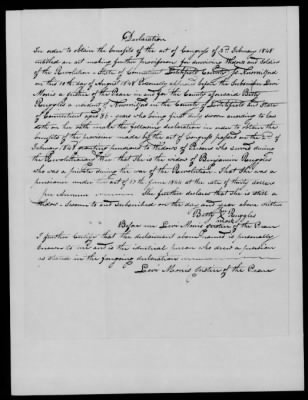 Declaration
In order to obtain the benefits of the act of Congress of 2d February 1848
entitled an act making further provision for surviving Widows and Soldiers
of the Revolution - State of Connecticut Litchfield County ss New Milford
on this 10th day of August 1848 Personally appeared before the Subscriber Levi
Morris a Justice of the Peace in and for the County aforesaid Betty
Ruggles a resident of New milford in the County of Litchfield and State
of Connecticut aged 86 years who being first duly sworn according to law
doth on her oath make the following declaration in order to obtain the
benefits of the provision made by the act of Congress passed on the 2d of
February 1848 granting pensions to Widows of Persons who served during
the Revolutionary War that She is the widow of Benjamin Ruggles
who was a private during the war of the Revolution That She was a
pensioner under the act of 17th June 1844 at the rate of thirty dollars
per Annum She further declares that she is still a
Widow - Sworn to and subscribed on the day and year above written
Betty X Ruggles
mark
Before me Levi Morris Justice of the Peace
I further Certify that the declarant above named is personally
known to me and is the identical person who drew a pension
as stated in the foregoing declaration
Levi Morris Justice of the Peace